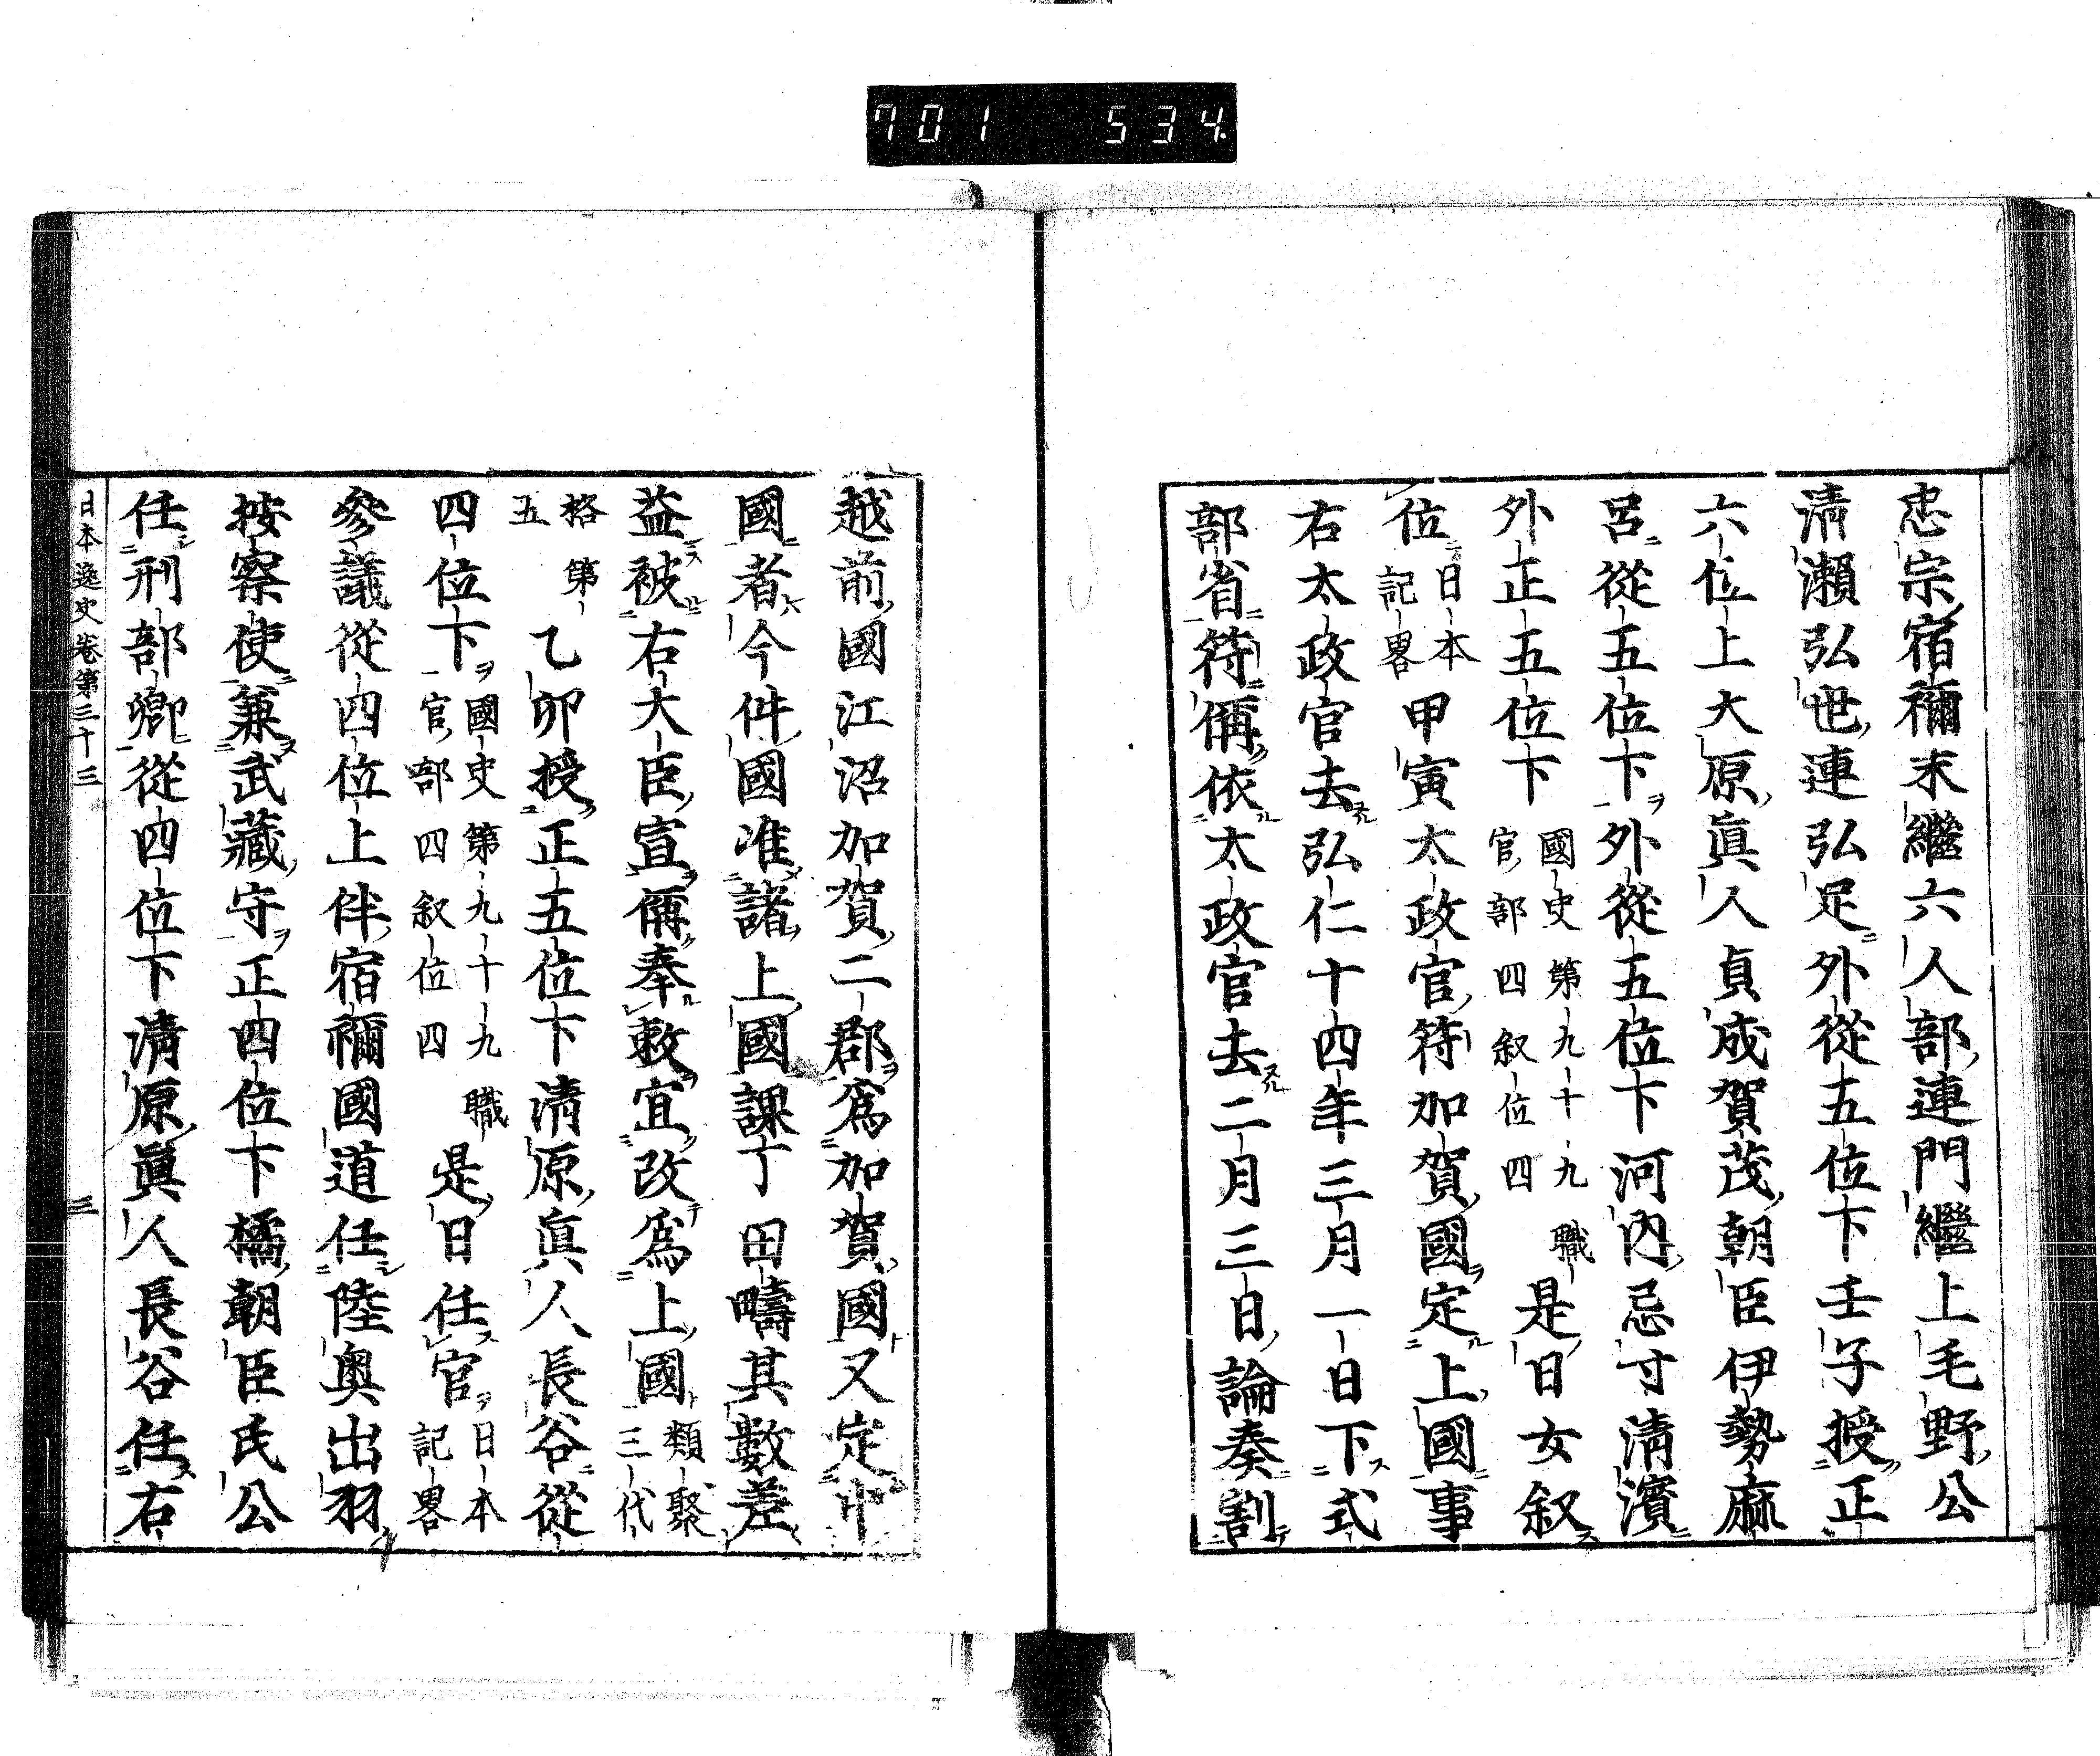 701 534
忠宗宿禰末繼六人部連門繼上毛野公
清瀬弘世連弘足外從五位下壬子授正
六位上大原眞人貞成賀茂朝臣伊勢麻
呂從五位下外從五位下河内忌寸清濱
外正五位下國史第九十九職官部四叙位四是日女叙
位日本記畧甲寅太政官符加賀國定上國事
右太政官去弘仁十四年三月一日下式
部省符偁依太政官去二月三日論奏割
越前國江沼加賀二郡爲加賀國又定中
國者今件國准諸上國課丁田疇其數差
益被右大臣宣偁奉敕宜改爲上國類聚三代
格第五乙卯授正五位下清原眞人長谷從
四位下國史第九十九職官部四叙位四是日任官日本記畧
參議從四位上伴宿禰國道任陸奥出羽
按察使兼武藏守正四位下橘朝臣氏公
任刑部卿從四位下清原眞人長谷任右
日本逸史卷第三十三 三